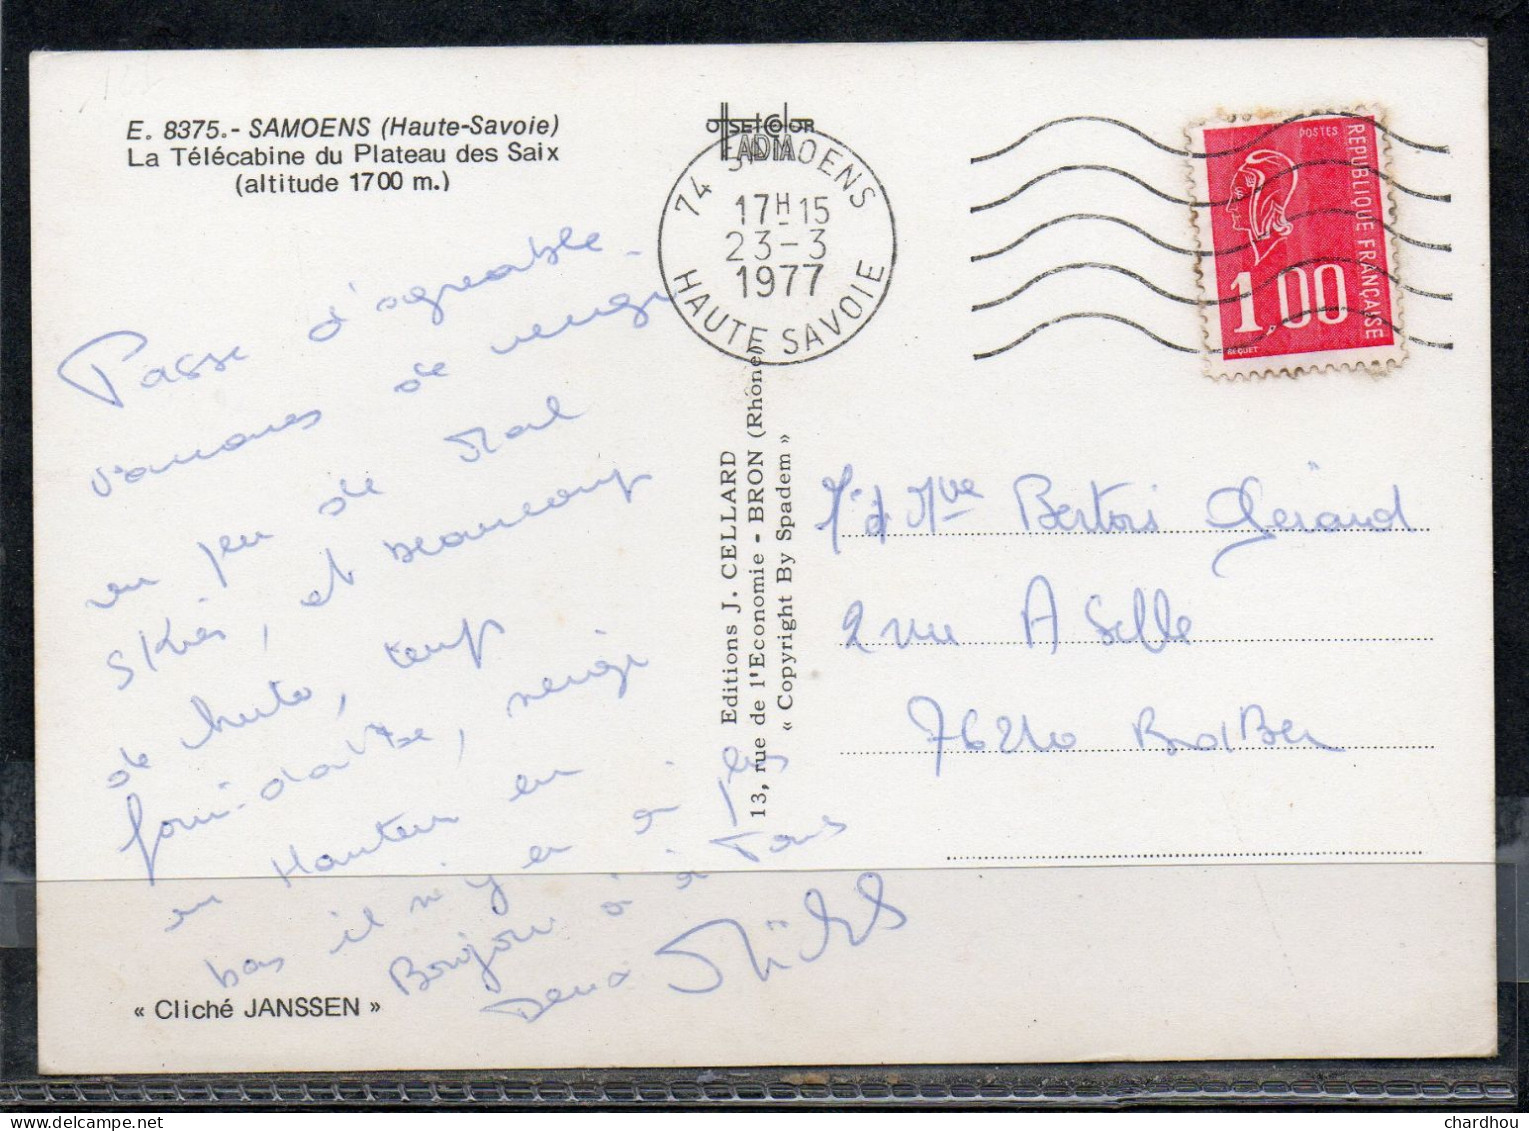 E. 8375.- SAMOENS (Haute-Savoie)
La Télécabine du Plateau des Saix
(altitude 1700 m.)
Passe d'agreable
vacances de neige
un peu de mal
skiés, et beaucoup
de chute, temps
formidable, neige
en Hauteur en
bas il n'y en a plus
Bonjour à à Tous
Deux Michel
« Cliché JANSSEN »
SETCOLOR
LADIA
74 SAMOENS
17H15
23-3
1977
HAUTE SAVOIE
Editions J. CELLARD
13, rue de l'Economie - BRON (Rhône)
« Copyright By Spadem »
POSTES
REPUBLIQUE FRANÇAISE
1,00
BEQUET
Mr d Mve Bertois Gérard
2 rue A
76210
chardhou